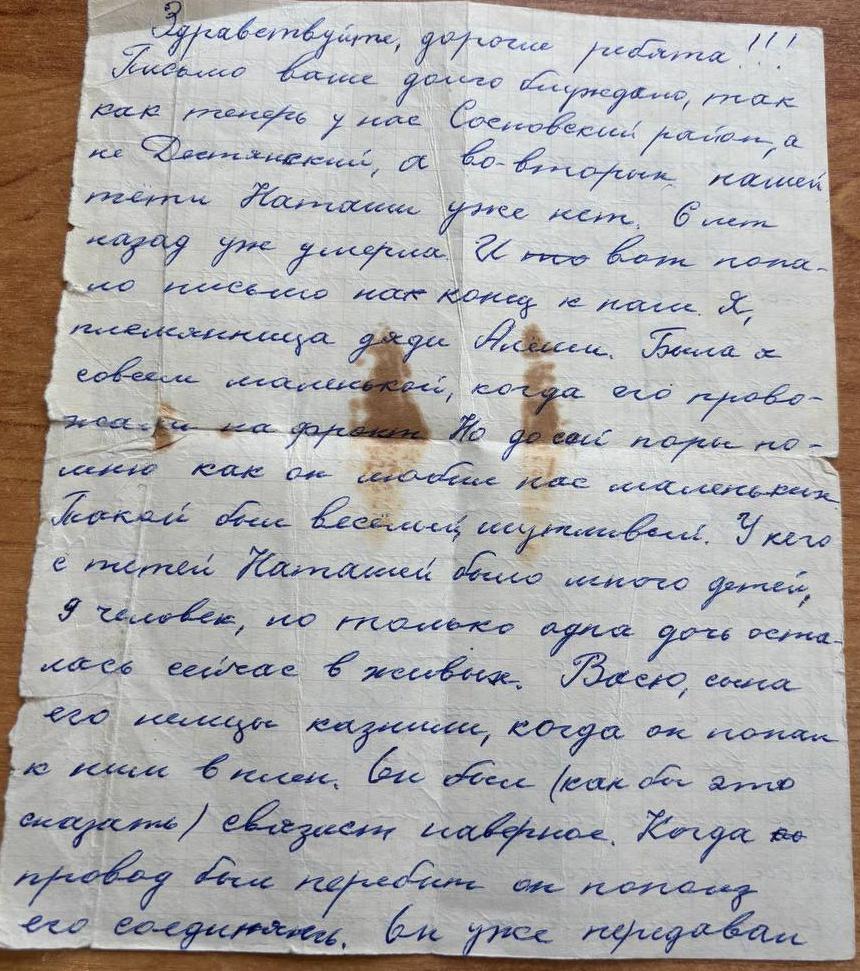 Здравствуйте, дорогие ребята!!!
Письмо ваше долго блуждало, так
как теперь у нас Сосновский район, а
не Деснянский, а во-вторых нашей
тёти Наташи уже нет. 6 лет
назад уж умерла. И то вот попа-
ло письмо нак конец к нам. Я,
племянница дяди Алёши. Была я
совсем маленькой, когда его прово-
жали на фронт Но до сей поры по-
мню как он любил нас маленьких.
Такой был весёлый, шутливый. У него
с тётей Наташей было много детей,
9 человек, но только одна дочь оста-
лась сейчас в живых. Васю, сына
его немцы казнили, когда он попал
к ним в плен. Он был (как бы это
сказать) связист наверное. Когда
провод был перебит он пополз
его соединять. Он уже передавал